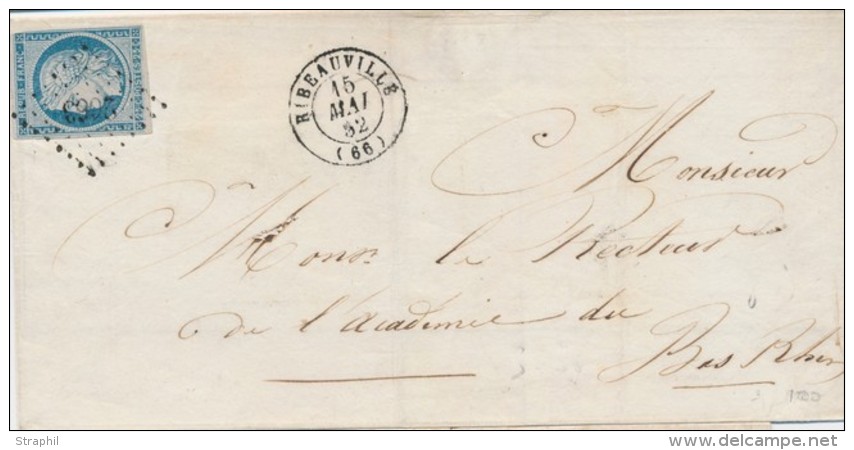 REPUB. FRANC.
RIBEAUVILLÉ
15
MAI
52
(66)
Monsieur
Monsr. le Recteur
de l'académie du
Bas Rhin
Straphil
delcampe.net